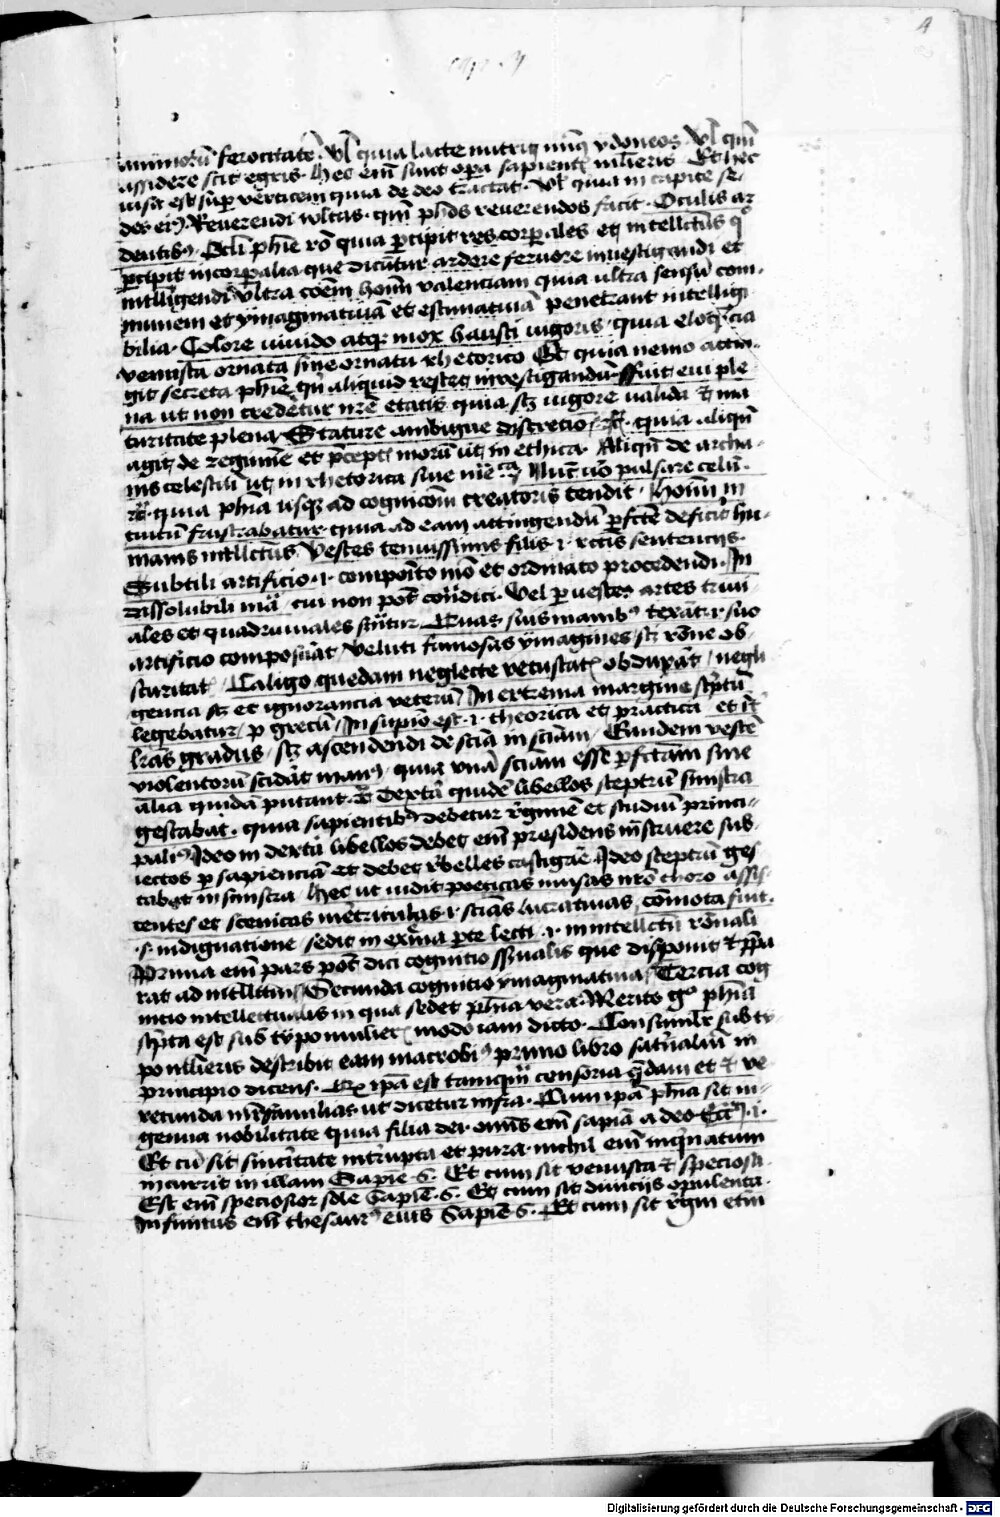 4
animorũ ferocitatẽ. Vl̃ quia lacte nutrit ydoneos. Vl̃ qm̃
assidere scit egris. Hec em̃ sunt opera sapientis mulieris. Et hec
visa est sup verticem quia de deo tractat. Vl̃ quia in capite se-
det. Reverendi vultus. qm̃ phõs reverendos facit. Oculis ar
dentibꝰ. Oculi phie quia percipit res corporales et intellectus
percipit incorporalia que dicũtur ardere fervore investigandi et
intelligendi. Ultra cõem hoĩm valenciam quia ultra sensũ com-
munem et ymaginativã et estimativã penetrant intelligi
bilia. Colore vivido atqꝫ inexhausti vigoris. quia eloquẽcia
venusta ornata sine ornatu rhetorico Et quia nemo attin-
git secreta phie qñ aliquid restet investigandũ. ffuit evi ple
na ut non crederetur nr̃e etatis quia sꝫ vigore valida et ma
turitate plena. Stature ambigue discretionis. quia aliqñ
agit de regimine et p̃ceptis morũ ut in ethica. Aliqñ de archa-
nis celestiũ ut in rhetorica sive Nunc vo pulsare celũ.
quia phia usqꝫ ad cognicõem creatoris tendit. Hoĩm in
tuitũ frustrabatur. quia ad eam attingendũ perfecte deficit hu-
manus intellectus. Vestes tenuissimis filis .i. rectis sentencijs.
Subtili artificio .i. composito modo et ordinato procedendi. In
dissolubili mã. cui non pot cont̃dici. Vel per vestes artes trivi-
ales et quadruviales Quas suis manibꝰ texãt .i. suo
artificio composuãt. Veluti famosas ymagines, sꝫ rõne ob-
scuritatis. Caligo quedam neglecte vetustatis obduxãt, negli
gencia sꝫ et ignorancia veterũ. In extrema margine sc̃ptũ
legebatur, p grecũ, In supmo est .t. theorica et practica, et ĩt
lr̃as gradus, sꝫ ascendendi de sciã in sciãm. Eandem vestẽ
violentorũ scidãt manꝰ, quia unã sciãm esse perfectam sine
alia quidã putant. Dextã quidẽ libellos sceptrũ sinistra
gestabat. quia sapientibꝰ debetur regimẽ et studiũ princi-
palis. Ideo in dextã libellos debet em̃ presidens instruere sub-
iectos p sapienciã et debet rebelles castigare. Ideo sceptrũ ges
tabat in sinistra. Hec ut vidit poeticas musas nr̃o thoro assis-
tentes et scenicas meretriculas .i. sciãs lucrativas, cõmota fuit
.s. indignatione, sedit in extrema parte lecti .i. in intellectu rõnali
Prima em̃ pars pot dici cognitio sensualis que disponit et prepa
rat ad intellectum. Secunda cognitio ymaginativa. Tercia cog
nicio intellectualis in qua sedet phia vera. Merito gͦ phia
sc̃pta est sub typo mulieris modo iam dicto. Consimilr̃ sub ty-
po mulieris describit eam macrobiꝰ primo libro saturnaliũ in
principio dicens. ipã est tamqꝫ censoria quedam et ve
recunda materfamilias ut dicetur infra. Cum ipã phia sit in-
genua nobilitate quia filia dei. omnis em̃ sapiã a deo
Et cũ sit sinceritate intrupta et pura. nichil em̃ inquinatum
incurrit in illam Sapie. 6. Et cum sit venusta et speciosa.
Est em̃ speciosior sole Sapie. 6. Et cum sit divicijs opulenta.
Infinitus em̃ thesaurꝰ eius Sapie. 6. Et cum sit etiã
Digitalisierung gefördert durch die Deutsche Forschungsgemeinschaft - DFG